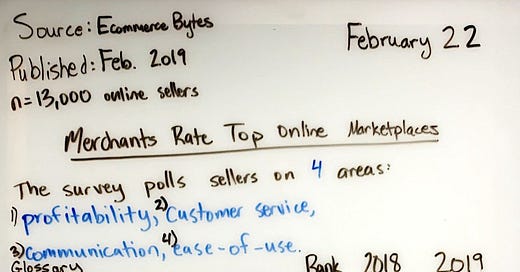 Source: Ecommerce Bytes
February 22
Published: Feb. 2019
n=13,000 online sellers
Merchants Rate Top Online Marketplaces
The survey polls sellers on 4 areas:
1) profitability, 2) Customer service,
3) communication, 4) ease-of-use.
Glossary
Rank 2018 2019